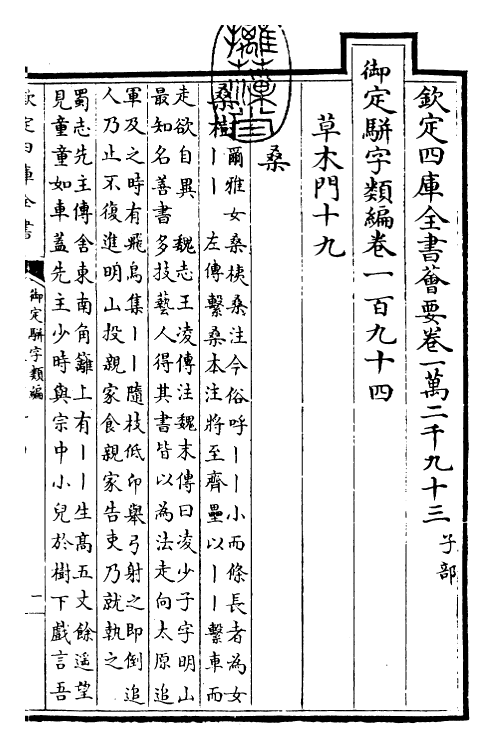 欽定四庫全書薈要卷一萬二千九十三 子部
御定駢字類編卷一百九十四
草木門十九
桑
桑樹 爾雅女桑桋桑注今俗呼丨丨小而條長者為女
丨丨 左傳繫桑本注將至齊壘以丨丨繫車而
走欲自異 魏志王凌傳注魏末傳曰凌少子字明山
最知名善書多技藝人得其書皆以為法走向太原追
軍及之時有飛鳥集丨丨隨枝低卬舉弓射之即倒追
人乃止不復進明山投親家食親家告吏乃就執之
蜀志先主傳舍東南角籬上有丨丨生高五丈餘遥望
見童童如車蓋先主少時與宗中小兒於樹下戲言吾
欽定四庫全書
御定駢字類編
一